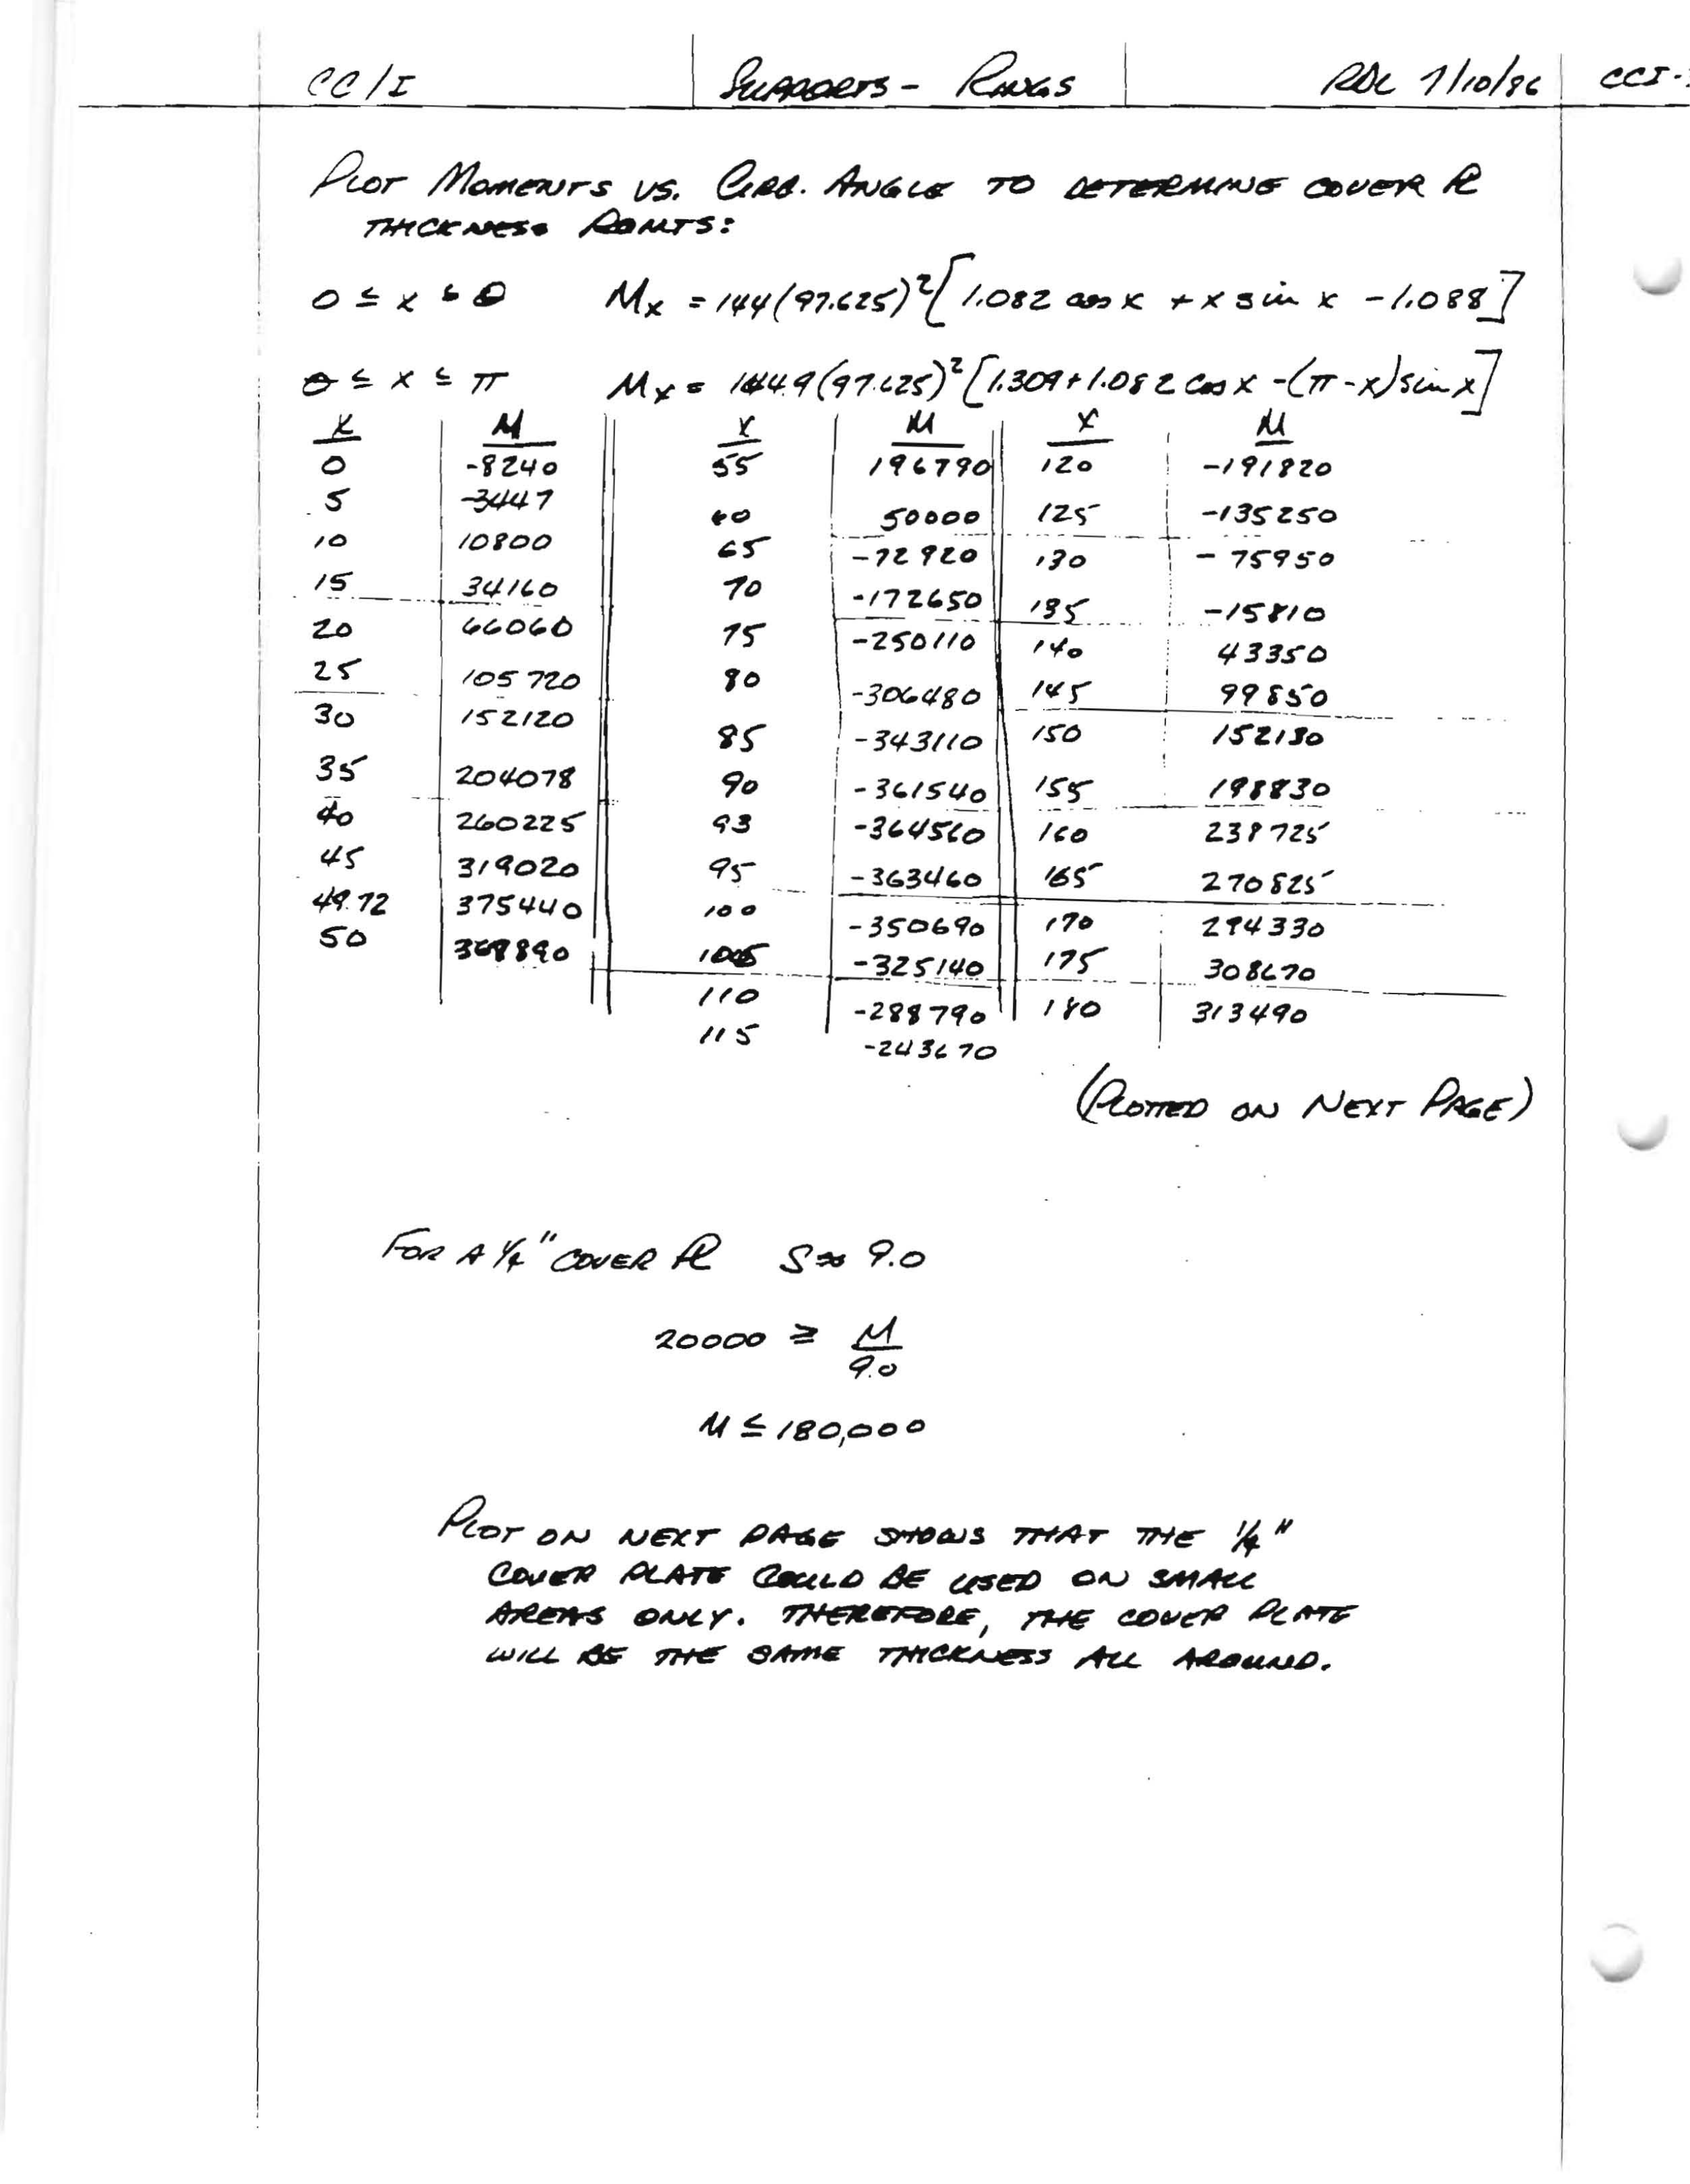 CC/I SUPPORTS - RINGS RDL 7/10/86 CCI-
PLOT MOMENTS VS. CIRC. ANGLE TO DETERMINE COVER ⅊
THICKNESS POINTS:
0 ≤ x ≤ θ Mx = 144(97.625)²[1.082 cos x + x sin x - 1.088]
θ ≤ x ≤ π Mx = 144.9(97.625)²[1.309+1.082 cos x -(π-x)sin x]
X M X M X M
0 -8240 55 196790 120 -191820
5 -3447 60 50000 125 -135250
10 10800 65 -72920 130 -75950
15 34160 70 -172650 135 -15810
20 66060 75 -250110 140 43350
25 105720 80 -306480 145 99850
30 152120 85 -343110 150 152130
35 204078 90 -361540 155 198830
40 260225 93 -364560 160 238725
45 319020 95 -363460 165 270825
49.72 375440 100 -350690 170 294330
50 368890 105 -325140 175 308670
110 -288790 180 313490
115 -243670
(PLOTTED ON NEXT PAGE)
FOR A 1/4" COVER ⅊ S≈ 9.0
20000 ≥ M
9.0
M ≤ 180,000
PLOT ON NEXT PAGE SHOWS THAT THE 1/4"
COVER PLATE COULD BE USED ON SMALL
AREAS ONLY. THEREFORE, THE COVER PLATE
WILL BE THE SAME THICKNESS ALL AROUND.